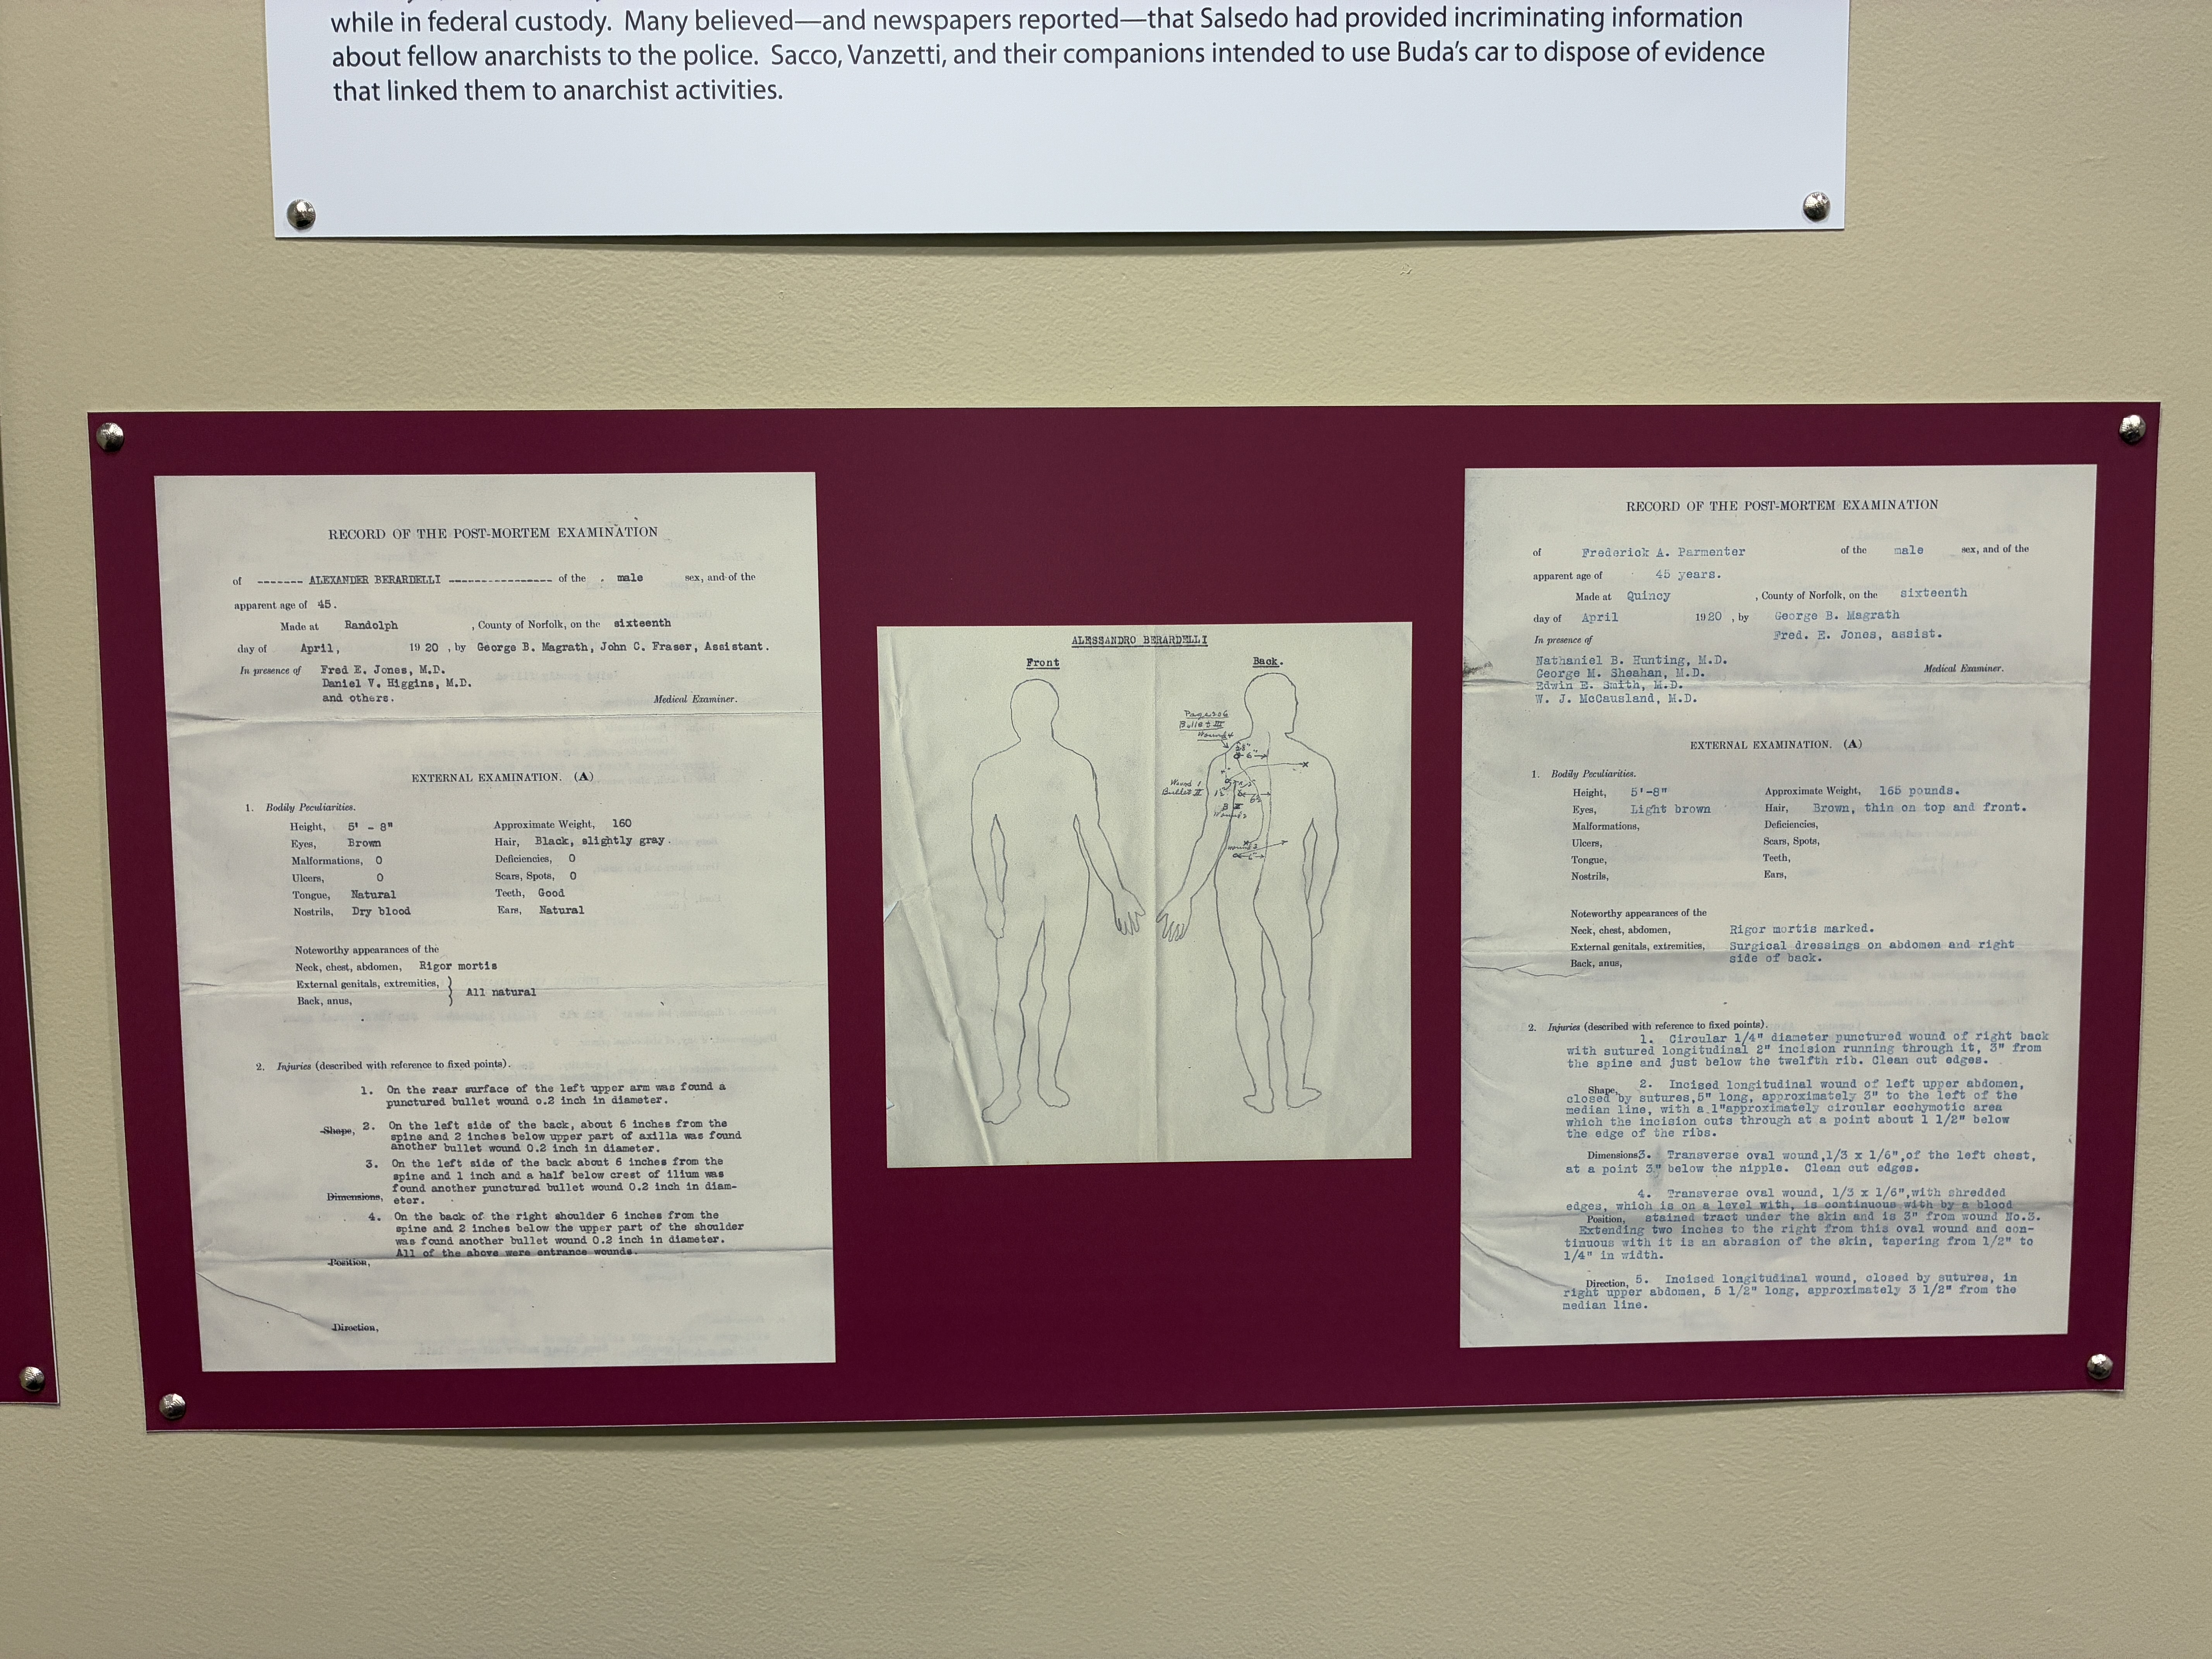 while in federal custody.  Many believed—and newspapers reported—that Salsedo had provided incriminating information
about fellow anarchists to the police.  Sacco, Vanzetti, and their companions intended to use Buda's car to dispose of evidence
that linked them to anarchist activities.
RECORD OF THE POST-MORTEM EXAMINATION
of ------- ALEXANDER BERARDELLI ---------------- of the . male sex, and of the
apparent age of 45.
Made at Randolph , County of Norfolk, on the sixteenth
day of April, 19 20 , by George B. Magrath, John C. Fraser, Assistant.
In presence of Fred E. Jones, M.D.
Daniel V. Higgins, M.D.
and others. Medical Examiner.
EXTERNAL EXAMINATION. (A)
1. Bodily Peculiarities.
Height, 5' - 8" Approximate Weight, 160
Eyes, Brown Hair, Black, slightly gray.
Malformations, 0 Deficiencies, 0
Ulcers, 0 Scars, Spots, 0
Tongue, Natural Teeth, Good
Nostrils, Dry blood Ears, Natural
Noteworthy appearances of the
Neck, chest, abdomen, Rigor mortis
External genitals, extremities,
All natural
Back, anus,
2. Injuries (described with reference to fixed points).
1. On the rear surface of the left upper arm was found a
punctured bullet wound 0.2 inch in diameter.
Shape, 2. On the left side of the back, about 6 inches from the
spine and 2 inches below upper part of axilla was found
another bullet wound 0.2 inch in diameter.
3. On the left side of the back about 6 inches from the
spine and 1 inch and a half below crest of ilium was
found another punctured bullet wound 0.2 inch in diam-
Dimensions, eter.
4. On the back of the right shoulder 6 inches from the
spine and 2 inches below the upper part of the shoulder
was found another bullet wound 0.2 inch in diameter.
All of the above were entrance wounds.
Position,
Direction,
ALESSANDRO BERARDELLI
Front Back.
Page 206
Bullet III
Wound 4
Wound 1
Bullet II
RECORD OF THE POST-MORTEM EXAMINATION
of Frederick A. Parmenter of the male sex, and of the
apparent age of 45 years.
Made at Quincy , County of Norfolk, on the sixteenth
day of April 1920 , by George B. Magrath
In presence of Fred. E. Jones, assist.
Nathaniel B. Hunting, M.D.
George M. Sheahan, M.D. Medical Examiner.
Edwin E. Smith, M.D.
W. J. McCausland, M.D.
EXTERNAL EXAMINATION. (A)
1. Bodily Peculiarities.
Height, 5'-8" Approximate Weight, 165 pounds.
Eyes, Light brown Hair, Brown, thin on top and front.
Malformations, Deficiencies,
Ulcers, Scars, Spots,
Tongue, Teeth,
Nostrils, Ears,
Noteworthy appearances of the
Neck, chest, abdomen, Rigor mortis marked.
External genitals, extremities, Surgical dressings on abdomen and right
Back, anus, side of back.
2. Injuries (described with reference to fixed points).
1. Circular 1/4" diameter punctured wound of right back
with sutured longitudinal 2" incision running through it, 3" from
the spine and just below the twelfth rib. Clean cut edges.
Shape, 2. Incised longitudinal wound of left upper abdomen,
closed by sutures,5" long, approximately 3" to the left of the
median line, with a 1"approximately circular ecchymotic area
which the incision cuts through at a point about 1 1/2" below
the edge of the ribs.
Dimensions3. Transverse oval wound,1/3 x 1/6",of the left chest,
at a point 3" below the nipple. Clean cut edges.
4. Transverse oval wound, 1/3 x 1/6",with shredded
edges, which is on a level with, is continuous with by a blood
Position, stained tract under the skin and is 3" from wound No.3.
Extending two inches to the right from this oval wound and con-
tinuous with it is an abrasion of the skin, tapering from 1/2" to
1/4" in width.
Direction, 5. Incised longitudinal wound, closed by sutures, in
right upper abdomen, 5 1/2" long, approximately 3 1/2" from the
median line.